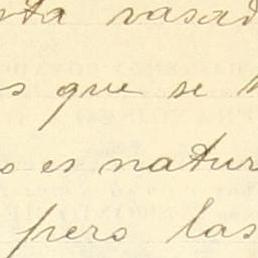 sta rasad
s que se
o es natur
pero las